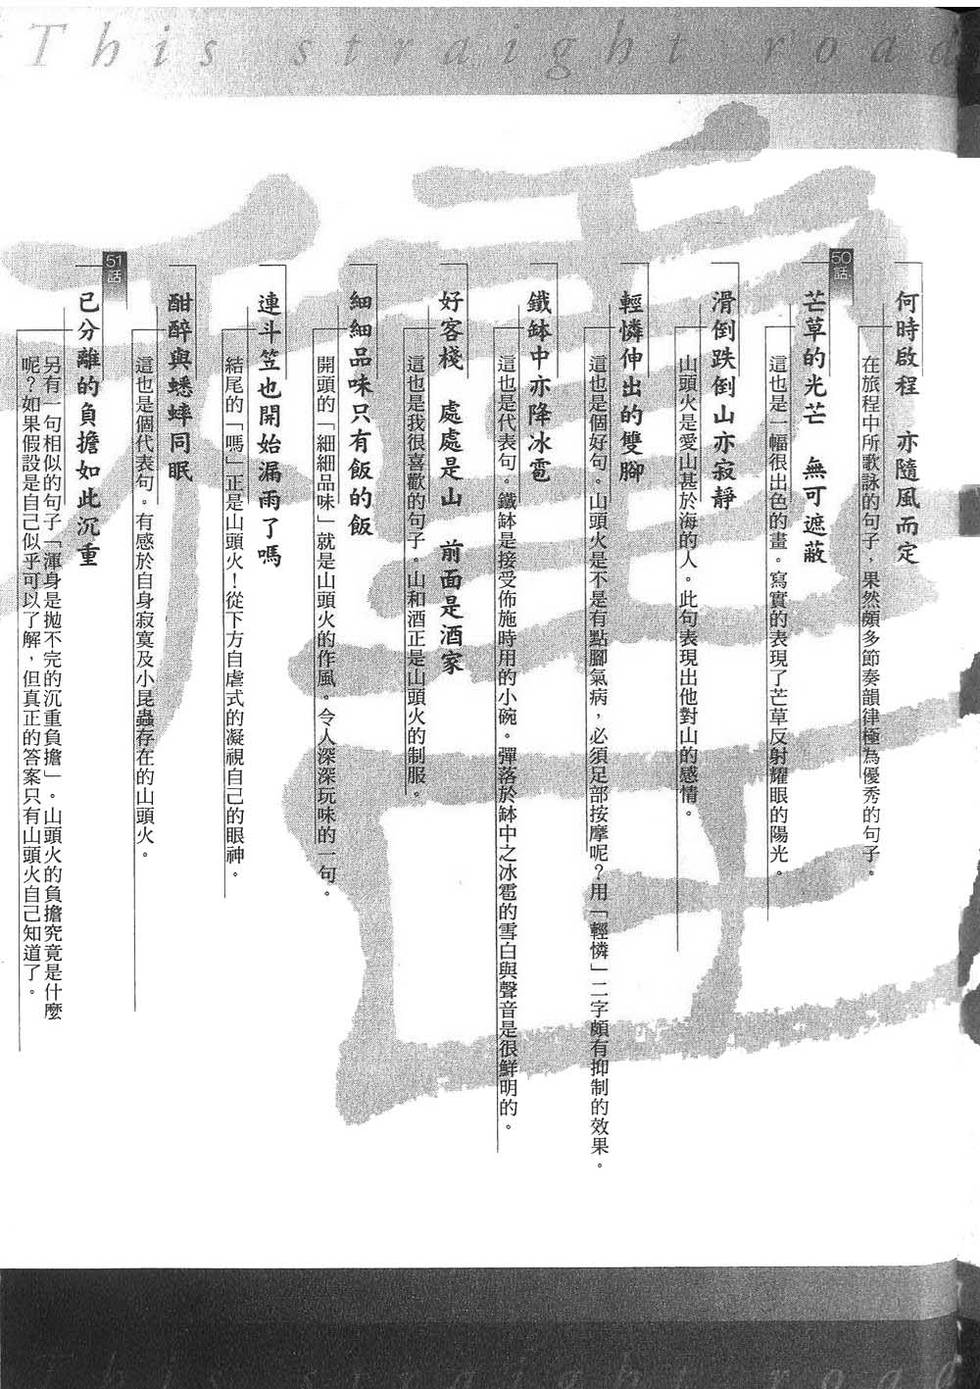 This straight road
何時啟程　亦隨風而定
在旅程中所歌詠的句子，果然頗多節奏韻律極為優秀的句子。
50話
芒草的光芒　無可遮蔽
這也是一幅很出色的畫。寫實的表現了芒草反射耀眼的陽光。
滑倒跌倒山亦寂靜
山頭火是愛山甚於海的人。此句表現出他對山的感情。
輕憐伸出的雙腳
這也是個好句。山頭火是不是有點腳氣病，必須足部按摩呢？用「輕憐」二字頗有抑制的效果。
鐵缽中亦降冰雹
這也是代表句。鐵缽是接受佈施時用的小碗。彈落於缽中之冰雹的雪白與聲音是很鮮明的。
好客棧　處處是山　前面是酒家
這也是我很喜歡的句子。山和酒正是山頭火的制服。
細細品味只有飯的飯
開頭的「細細品味」就是山頭火的作風。令人深深玩味的一句。
連斗笠也開始漏雨了嗎
結尾的「嗎」正是山頭火！從下方自虐式的凝視自己的眼神。
酣醉與蟋蟀同眠
這也是個代表句。有感於自身寂寞及小昆蟲存在的山頭火。
51話
已分離的負擔如此沉重
另有一句相似的句子「渾身是拋不完的沉重負擔」。山頭火的負擔究竟是什麼
呢？如果假設是自己似乎可以了解，但真正的答案只有山頭火自己知道了。
This straight road